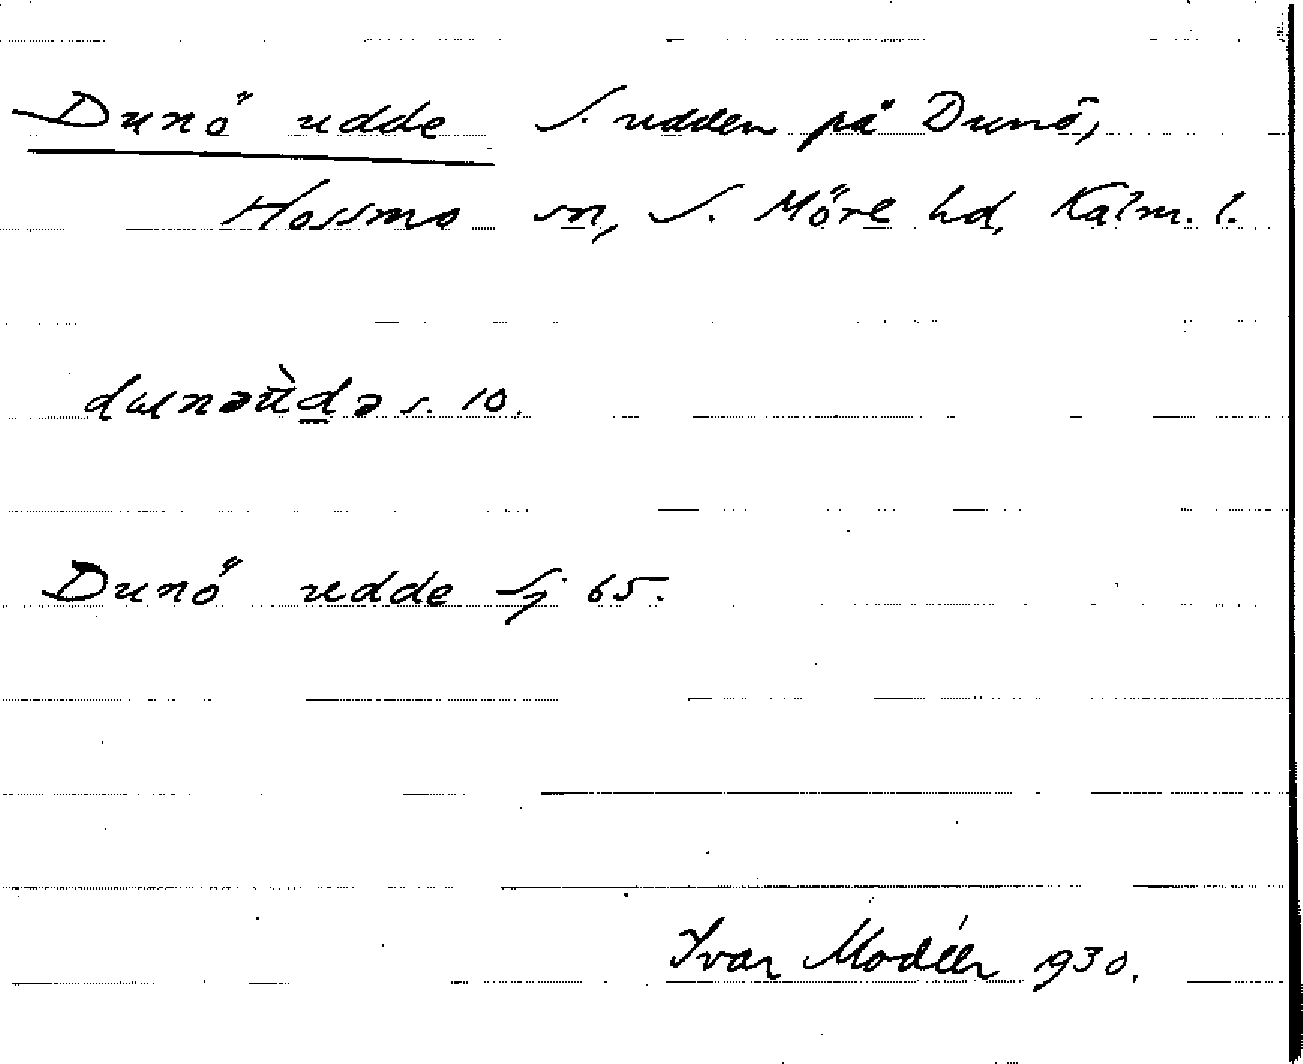 Dunö udde S. udden på Dunö,
Hossmo sn, S. Möre hd, Kalm. l.
dunəùdə s. 10.
Dunö udde Sj 65.
Ivar Modéer 1930.